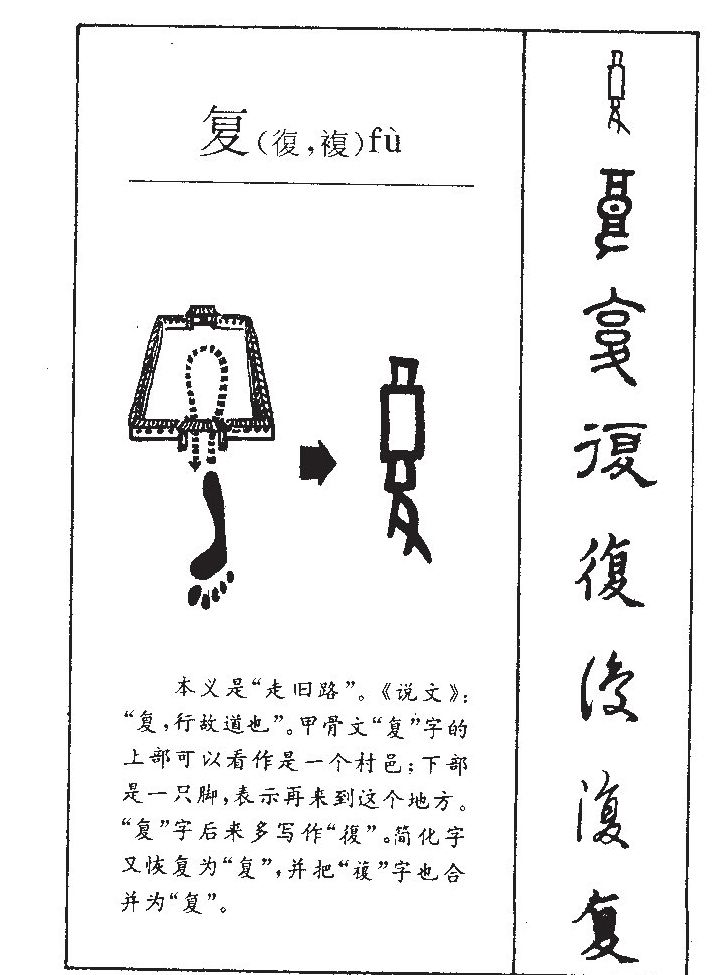 复(復,複)fù
本义是“走旧路”。《说文》:
“复,行故道也”。甲骨文“复”字的
上部可以看作是一个村邑;下部
是一只脚,表示再来到这个地方。
“复”字后来多写作“復”。简化字
又恢复为“复”,并把“複”字也合
并为“复”。
復
復
复